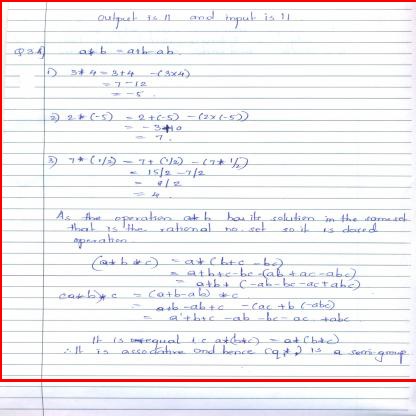 output is 11 and input is 11
Q3A) a*b = a+b-ab.
1) 3*4 = 3+4 -(3x4)
= 7-12
= -5.
2) 2*(-5) = 2+(-5) -(2x(-5))
= -3+10
= 7.
3) 7*(1/2) = 7+(1/2) -(7*1/2)
= 15/2 -7/2
= 8/2
= 4.
As the operation a*b has its solution in the same set
that is the rational no. set so it is closed
operation.
(a*b*c) = a*(b+c -bc)
= a+b+c-bc-(ab+ac-abc)
= a+b+(-ab-bc-ac+abc)
(a*b)*c = (a+b-ab)*c
= a+b-ab+c -(ac+b(-abc)
= a+b+c -ab-bc-ac +abc
It is equal i.e a*(b*c) = a*(b*c)
∴ It is associative and hence (Q,*) is a semi-group